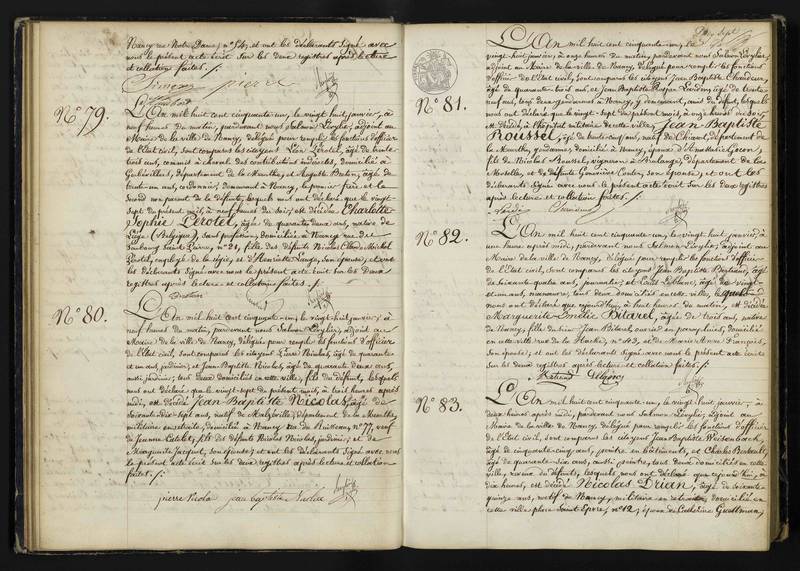 Nancy rue Notre Dame, n° 54; et ont les déclarants Signé avec
nous le présent acte écrit Sur les deux registres après lecture
et collation faites. /.
Simeon pierre
N° 79.
L'An mil huit cent cinquante-un, le vingt-huit janvier, à
neuf heures du matin, pardevant nous Salmon Léopold, adjoint au
Maire de la ville de Nancy, délégué pour remplir les fonctions d'officier
de l'Etat civil, sont comparus les citoyens Léon Lerotel, âgé de trente
trois ans, commis à cheval des contributions indirectes, domicilié à
département de la Meurthe, et Auguste Breton, âgé de
trente-un ans, cordonnier, demeurant à Nancy, le premier frère et le
second non parent de la défunte; lesquels nous ont déclaré que le vingt-
sept du présent mois, à neuf heures du soir, est décédée Charlotte
Sophie Lerotel, âgée de quarante deux ans, native de
Liège (Belgique), sans profession, domiciliée à Nancy rue du
faubourg Saint Pierre, n° 21, fille des défunts Nicolas Claude Michel
Lerotel, employé de la régie, et d'Henriette Lange, son épouse; et ont
les déclarants Signé avec nous le présent acte écrit Sur les deux
registres après lecture et collation faites. /.
N° 80.
L'An mil huit cent cinquante-un, le vingt-huit janvier, à
neuf heures du matin, pardevant nous Salmon Léopold, adjoint au
Maire de la ville de Nancy, délégué pour remplir les fonctions d'officier
de l'Etat civil, sont comparus les citoyens Pierre Nicolas, âgé de quarante
et un ans, jardinier, et Jean Baptiste Nicolas, âgé de quarante deux ans,
aussi jardinier, tous deux domiciliés en cette ville, fils du défunt, lesquels
nous ont déclaré que le vingt-sept du présent mois, à trois heures après
midi, est décédé Jean Baptiste Nicolas, âgé de
soixante-dix-sept ans, natif de Malzéville, département de la Meurthe,
militaire en retraite, domicilié à Nancy rue du Ruisseau, n° 77, veuf
de Jeanne fils des défunts Nicolas Nicolas, jardinier, et de
Marguerite Jacquot, son épouse; et ont les déclarants Signé avec nous
le présent acte écrit Sur les deux registres après lecture et collation
faites. /.
pierre Nicolas jean baptiste Nicolas
N° 81.
L'An mil huit cent cinquante-un, le
vingt-huit janvier, à onze heures du matin, pardevant nous Salmon Léopold,
adjoint au Maire de la ville de Nancy, délégué pour remplir les fonctions
d'officier de l'Etat civil, sont comparus les citoyens Jean Baptiste
âgé de quarante trois ans, et Jean Baptiste âgé de trente
neuf ans, tous deux gendarmes à Nancy, y demeurant, amis du défunt, lesquels
nous ont déclaré que le vingt-sept du présent mois, à onze heures du soir,
est décédé, à l'hôpital militaire de cette ville, Jean Baptiste
Roussel, âgé de trente-sept ans, natif de département de
la Meurthe, gendarme, domicilié à Nancy, époux d'Anne Marie
fils de Nicolas Roussel, vigneron à département de la
Moselle, et de défunte Geneviève son épouse; et ont les
déclarants Signé avec nous le présent acte écrit Sur les deux registres
après lecture et collation faites. /.
N° 82.
L'An mil huit cent cinquante-un, le vingt-huit janvier, à
une heure après midi, pardevant nous Salmon Léopold, adjoint au
Maire de la ville de Nancy, délégué pour remplir les fonctions d'officier
de l'Etat civil, sont comparus les citoyens Jean Baptiste Bertrand, âgé
de soixante-quatre ans, journalier, et Louis Leblanc, âgé de vingt-
et-un ans, manœuvre, tous deux domiciliés en cette ville, lesquels
nous ont déclaré que aujourd'hui, à huit heures du matin, est décédée
Marguerite Emélie Bitarel, âgée de trois ans, native
de Nancy, fille du sieur Jean Bitarel, ouvrier en domicilié
en cette ville rue de la Hache, n° 42, et de Marie Anne François,
son épouse; et ont les déclarants Signé avec nous le présent acte écrit
Sur les deux registres après lecture et collation faites. /.
N° 83.
L'An mil huit cent cinquante-un, le vingt-huit janvier, à
deux heures après midi, pardevant nous Salmon Léopold, adjoint au
Maire de la ville de Nancy, délégué pour remplir les fonctions d'officier
de l'Etat civil, sont comparus les citoyens Jean Baptiste Weisembach,
âgé de cinquante-cinq ans, peintre en bâtiments, et Charles
âgé de quarante-six ans, aussi peintre, tous deux domiciliés en cette
ville, du défunt, lesquels nous ont déclaré que aujourd'hui, à
dix heures, est décédé Nicolas Drian, âgé de soixante-
quinze ans, natif de Nancy, militaire en retraite, domicilié en
cette ville place Saint Epvre, n° 12, époux de Catherine Guallman,